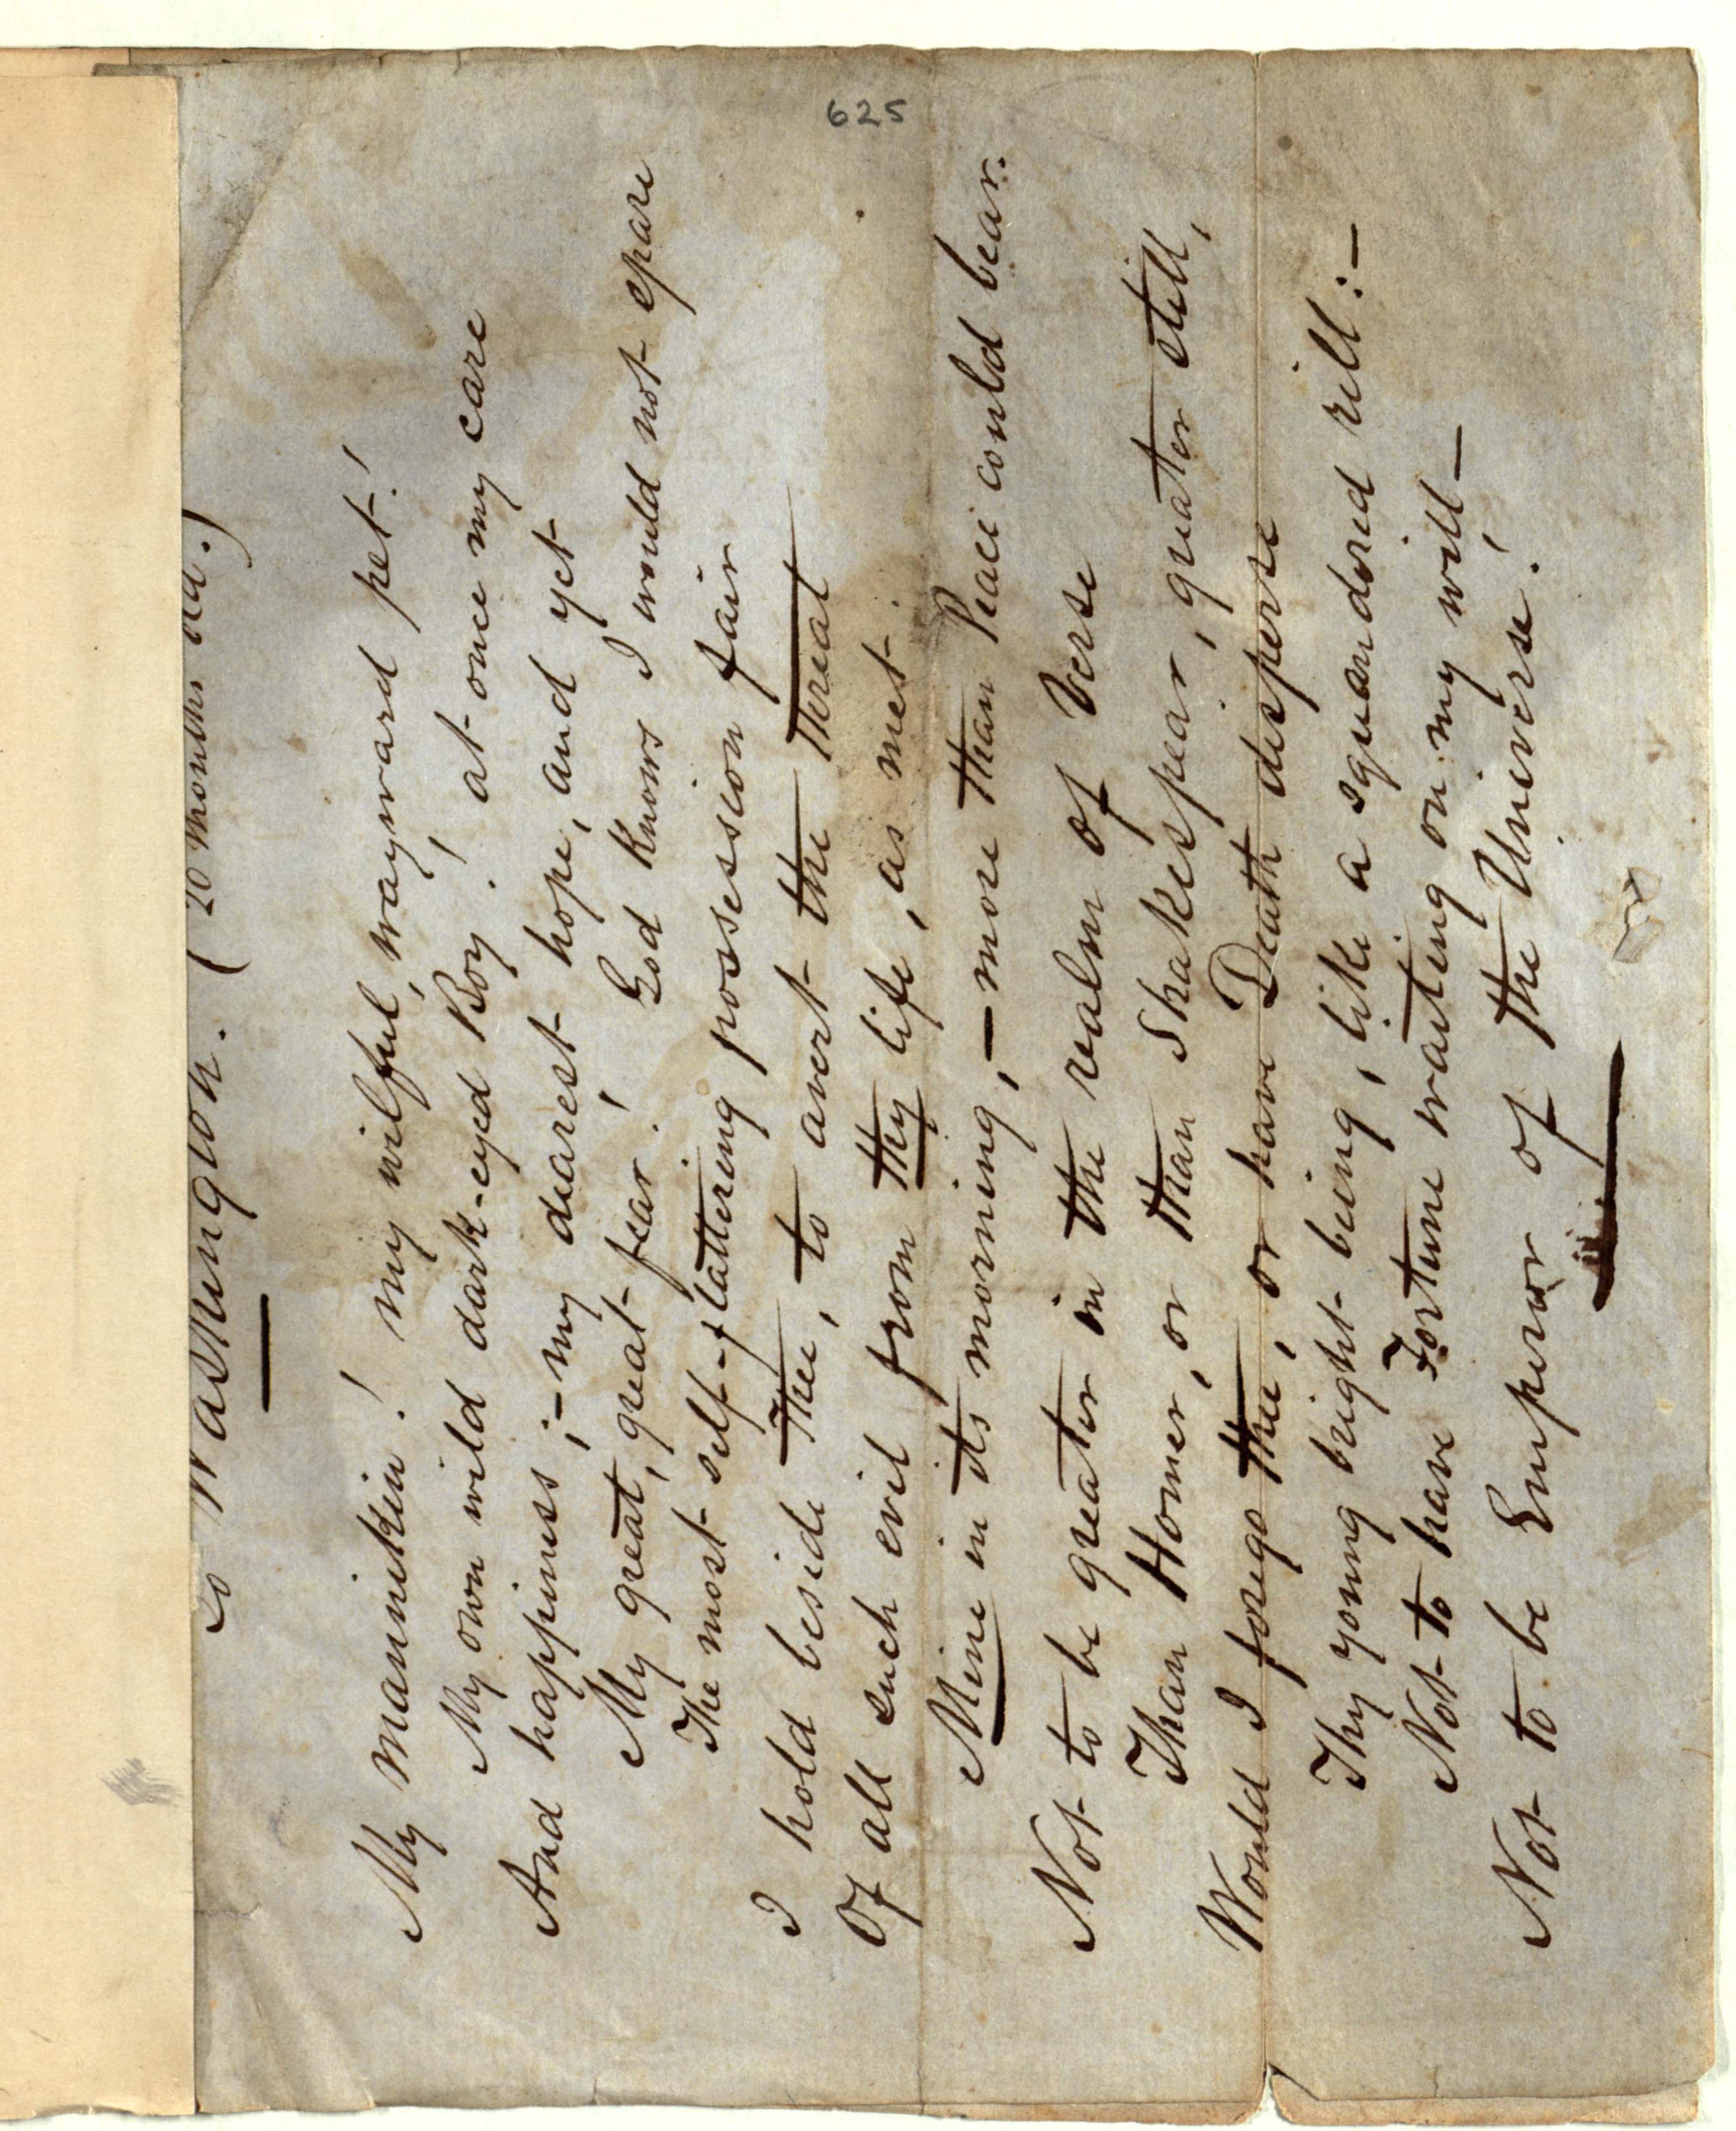 to Washington. (20 Months old.)
My mannikin! my wilful, wayward pet!
My own wild dark-eyed Boy! at once my care
And happiness;—my dearest hope, and yet
My great, great fear! God knows I would not spare
The most self-flattering possession fair
I hold beside Thee, to avert the Threat
Of all such evil from thy life, as met
Mine in its morning,—more than Peace could bear.
Not to be greater in the realm of Verse
Than Homer, or than Shakespear, greater still,
Would I forego thee, or have Death disperse
Thy young bright being, like a squandored rill:—
Not to have Fortune waiting on my will,—
Not to be Emperor of the Universe!
625